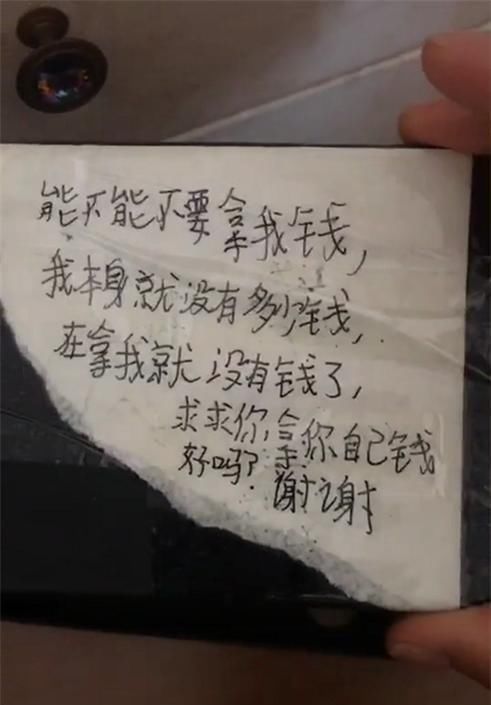 能不能不要拿我钱，
我本身就没有多少钱，
在拿我就没有钱了，
求求你，拿你自己钱
好吗？谢谢